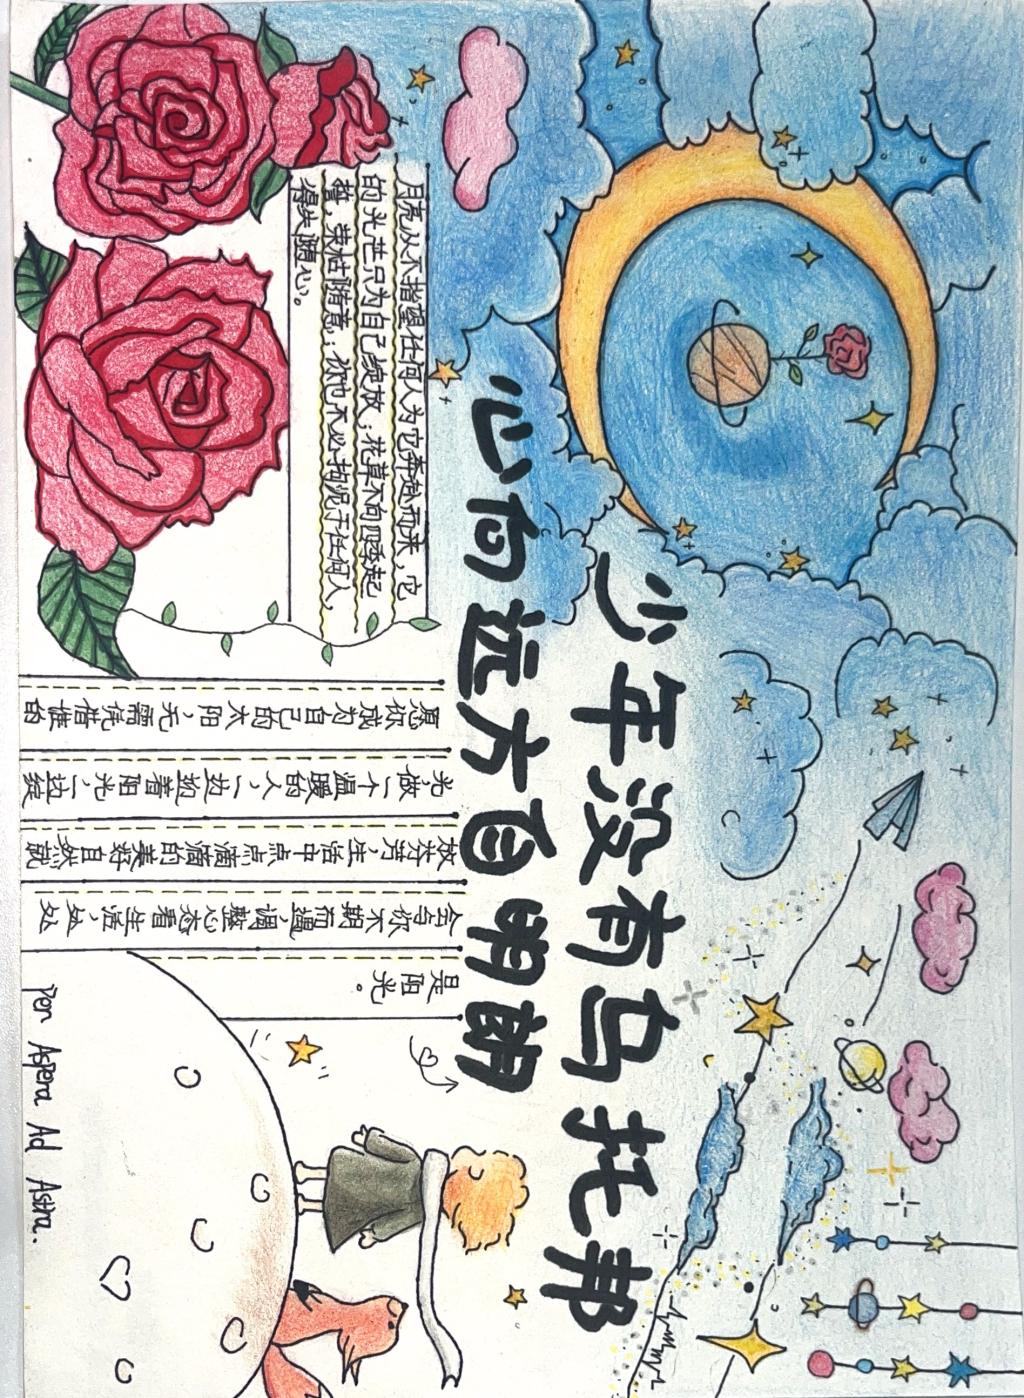 少年没有乌托邦
心向远方自明朗
月亮从不指望任何人为它奔赴而来，它
的光芒只为自己绽放；花草不向四季起
誓，荣枯随意；你也不必拘泥于任何人，
得失随心。
愿你成为自己的太阳，无需凭借谁的
光，做一个温暖的人，一边迎着阳光，一边绽
放芬芳，生活中点点滴滴的美好自然就
会与你不期而遇，调整心态看生活，处处
是阳光。
Per Aspera Ad Astra.